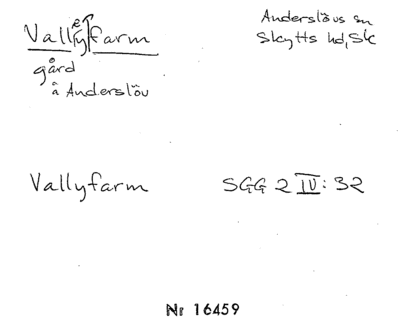 Valleyfarm
Anderslövs sn
Skytts hd, Sk
gård
å Anderslöv
Vallyfarm
SGG 2 IV: 32
Nr 16459